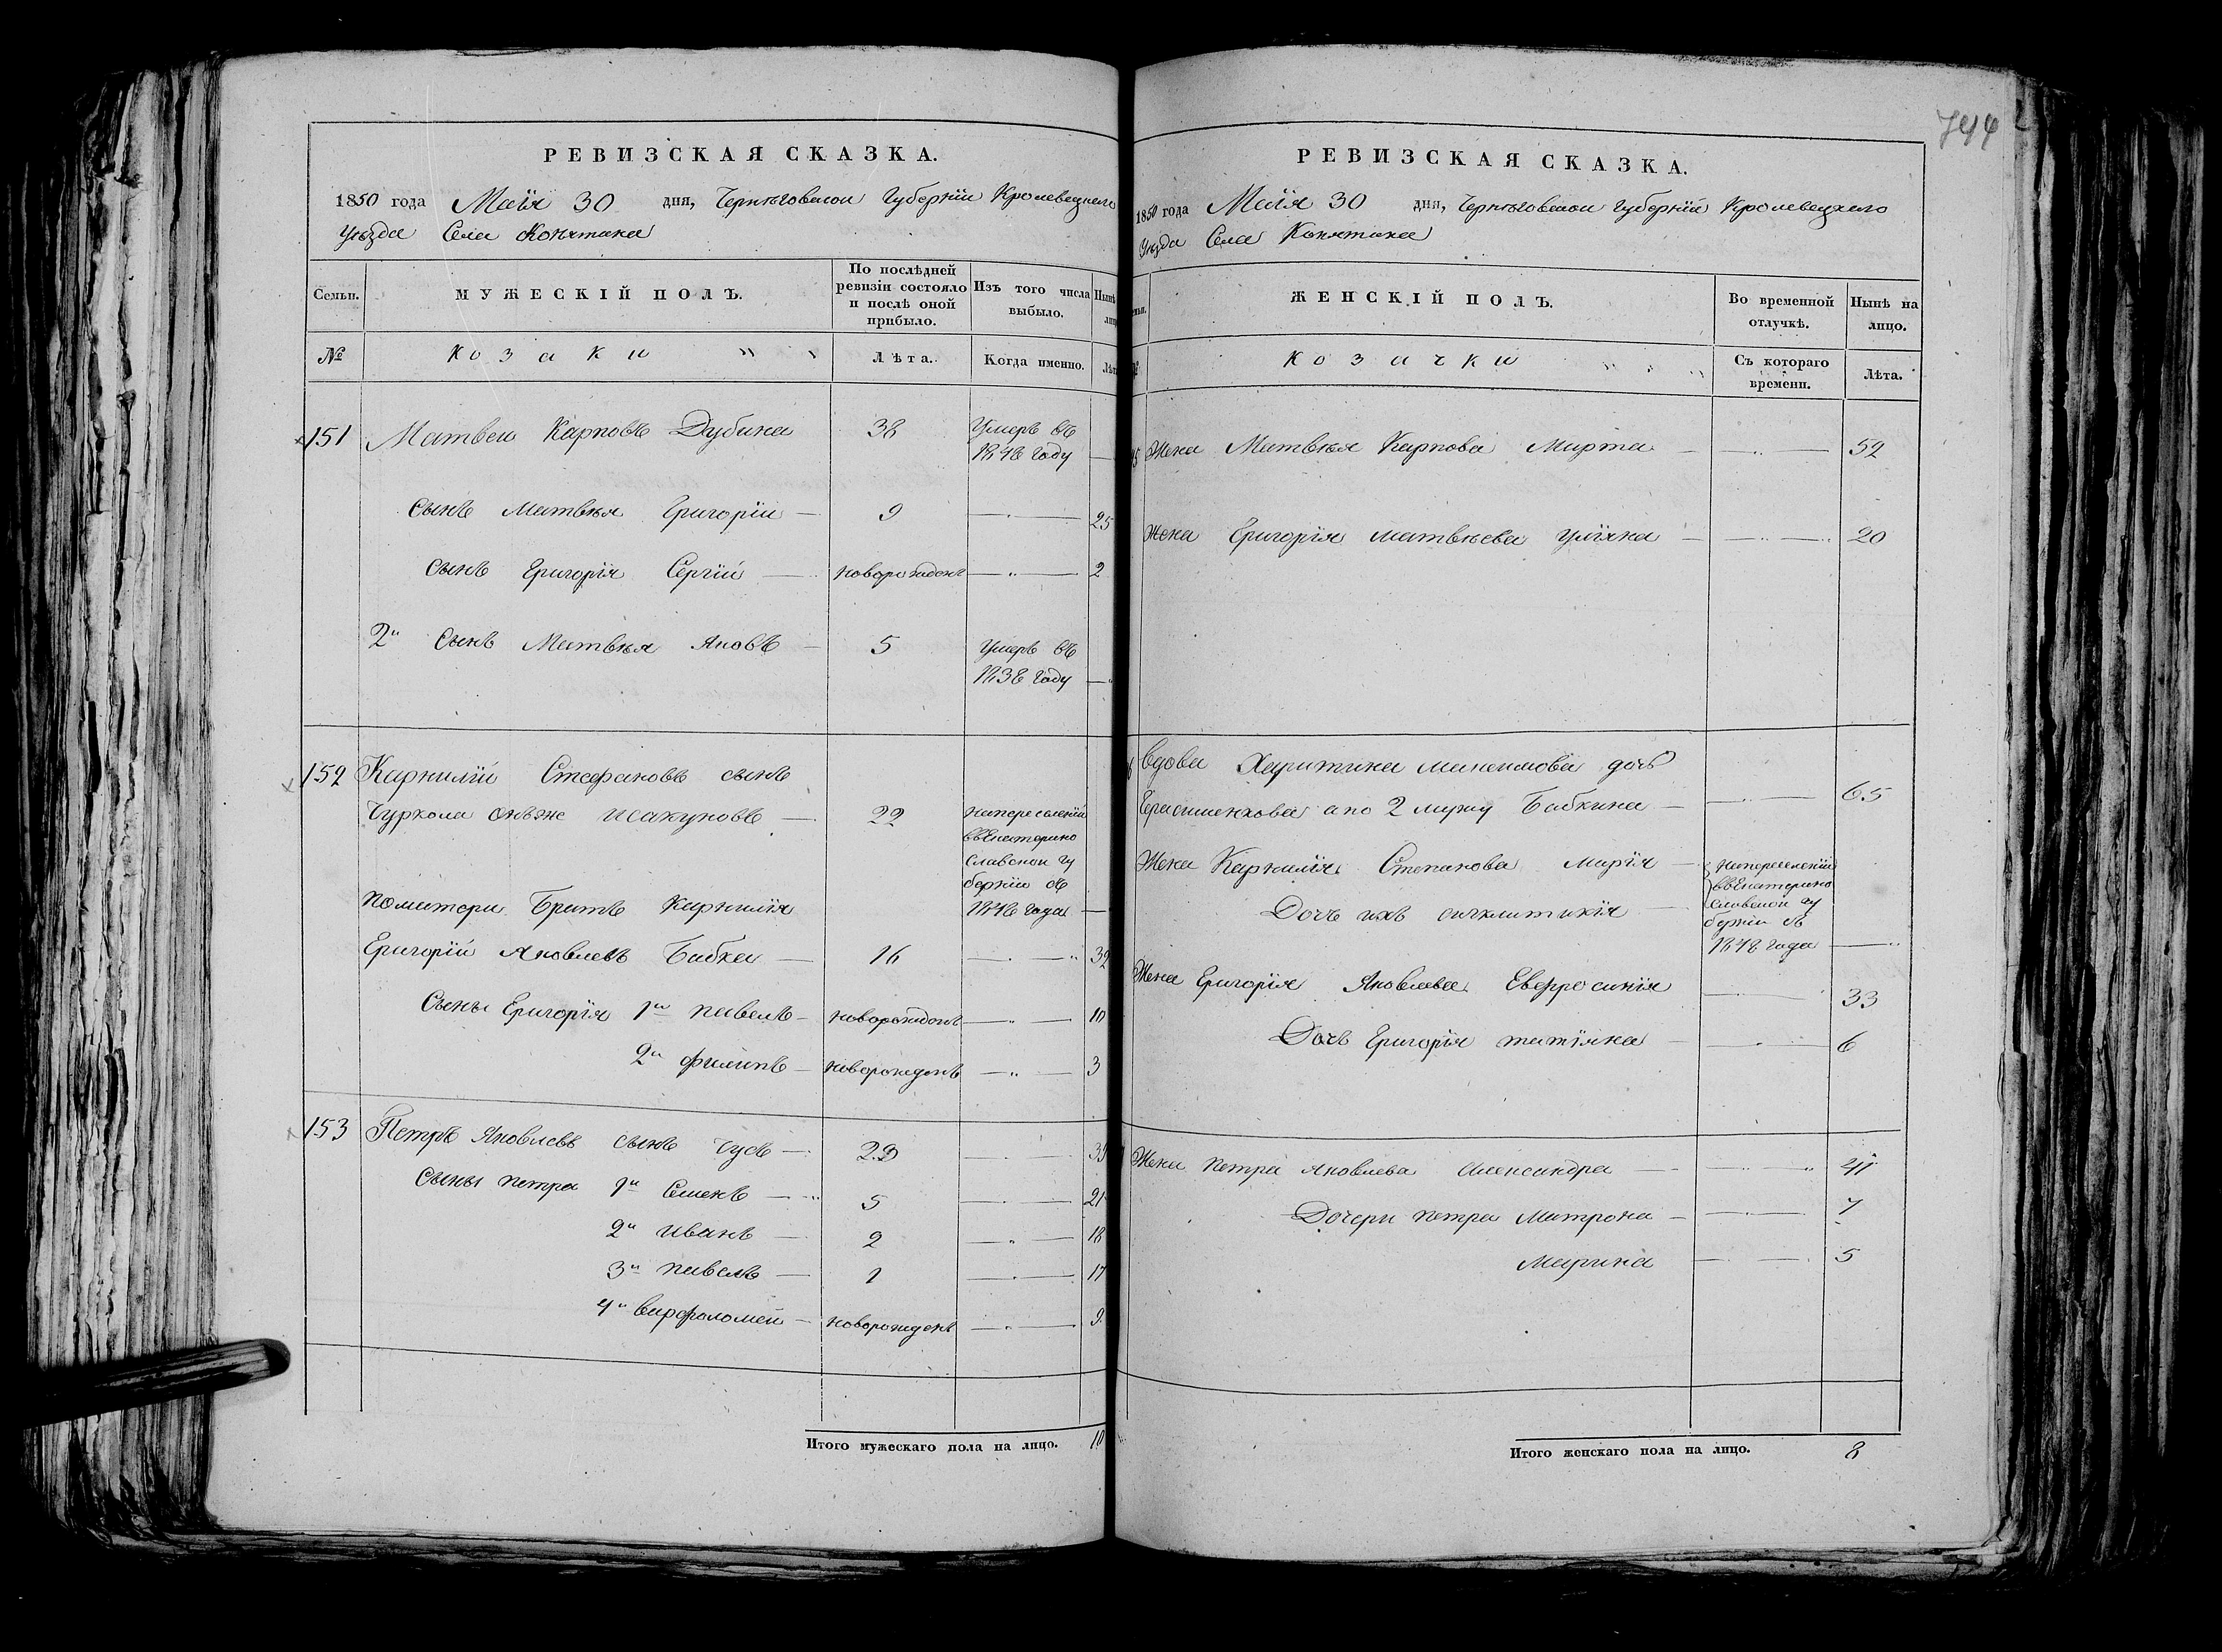 РЕВИЗСКАЯ СКАЗКА.
1850 года Маія 30 дня, Черниговской Губерніи Кролевецкаго
Уѣзда Села Конятина
Семьи.
МУЖЕСКІЙ ПОЛЪ.
По послѣдней ревизіи состояло и послѣ оной прибыло.
Изъ того числа выбыло.
Нынѣ
№
Козаки
Лѣта.
Когда именно.
151 Матвей Карповъ Дубина 38 Умеръ въ 1848 Году
Сынъ Матвѣя Григорій 9 25
Сынъ Григорія Сергій новорожденъ 2
2й Сынъ Матвѣя Яковъ 5 Умеръ въ 1838 Году
152 Карнилій Стефановъ сынъ
Чуркола онъже Исакуновъ 22 на переселеніи въ Екатерино славской гу берніи съ 1848 года
По матери Братъ Карнилія
Григорій Яковлевъ Бабка 16 32
Сыны Григорія 1й Павелъ новорожденъ 10
2й Филипъ новорожденъ 3
153 Петръ Яковлевъ сынъ Гусь 29
Сыны Петра 1й Семенъ 5 21
2й Иванъ 2 18
3й Павелъ 1 17
4й Варфоломей новорожденъ 9
Итого мужескаго пола на лицо. 10
744
РЕВИЗСКАЯ СКАЗКА.
1850 года Маія 30 дня, Черниговской Губерніи Кролевецкаго
Уѣзда Села Конятина
ЖЕНСКІЙ ПОЛЪ.
Во временной отлучкѣ.
Нынѣ на лицо.
Козачки
Съ котораго времени.
Лѣта.
Жена Матвѣя Карпова Марта 52
Жена Григорія Матвѣева Уліяна 20
Вдова Харитина Максимова дочь
Герасименкова а по 2 мужу Бабкина 65
Жена Карнилія Степанова Марія на переселеніи въ Екатерино славской гу берніи съ 1848 года
Дочь ихъ Синклитикія
Жена Григорія Яковлева Евфросинія 33
Дочь Григорія Татіяна 6
Жена Петра Яковлева Александра 41
Дочери Петра Матрона 7
Марина 5
Итого женскаго пола на лицо. 8